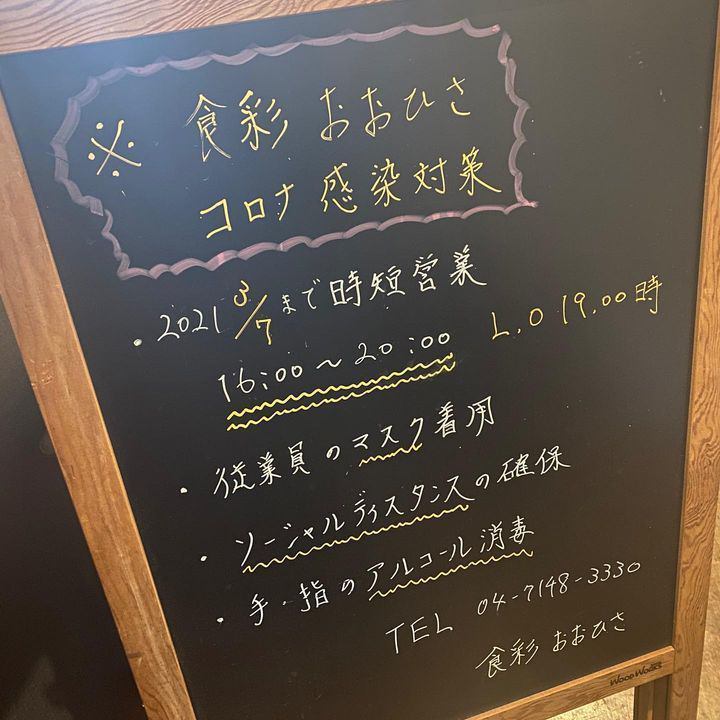 ※ 食彩 おおひさ
コロナ感染対策
・2021 3/7まで時短営業
16:00〜20:00 L.O 19.00時
・従業員のマスク着用
・ソージャルディスタンスの確保
・手・指のアルコール消毒
TEL 04-7148-3330
食彩 おおひさ
WOOD WORKS